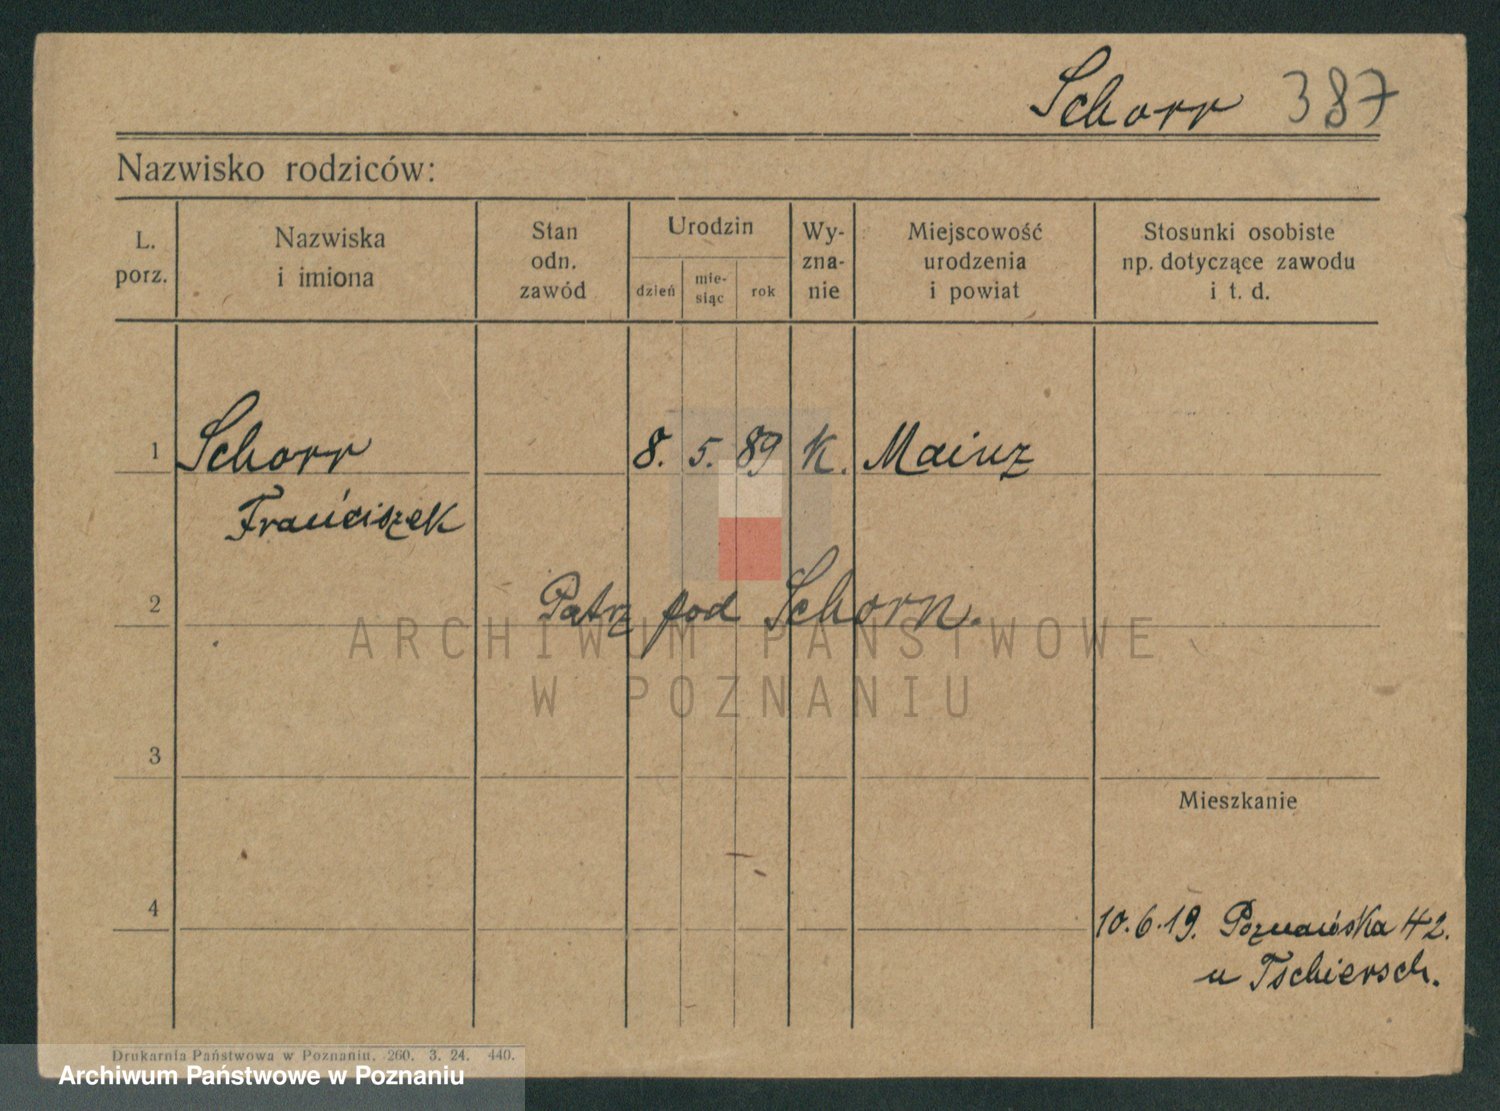 Schorr 387
Nazwisko rodziców:
L. porz.
Nazwiska i imiona
Stan odn. zawód
Urodzin
dzień
mie-siąc
rok
Wy-zna-nie
Miejscowość urodzenia i powiat
Stosunki osobiste np. dotyczące zawodu i t. d.
1 Schorr 8. 5. 89 k. Mainz
Franciszek
2 Patrz pod Schorn.
ARCHIWUM PAŃSTWOWE
W POZNANIU
3
Mieszkanie
4 10.6.19. Poznańska 42.
u Tschiersch.
Drukarnia Państwowa w Poznaniu. 260. 3. 24. 440.
Archiwum Państwowe w Poznaniu